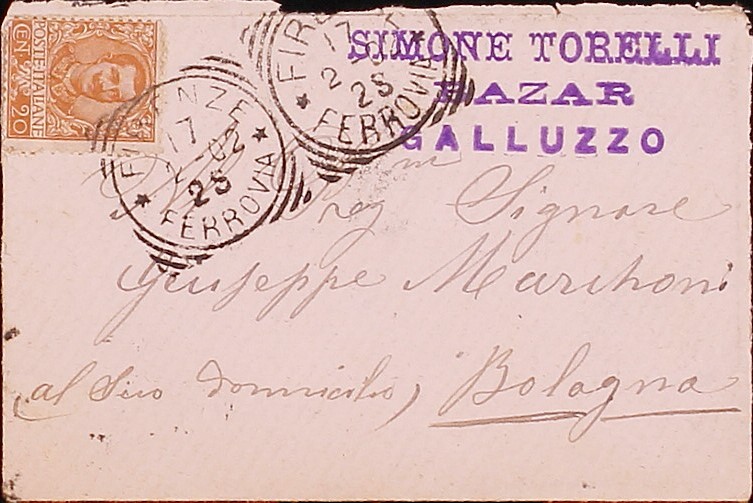 POSTE·ITALIANE
CEN. 20
FIRENZE
17
2-02
2S
FERROVIA
FIR
17
2
2S
FERROVIA
SIMONE TORELLI
BAZAR
GALLUZZO
Preg Signore
Giuseppe Marchoni
(al Suo domicilio) Bologna